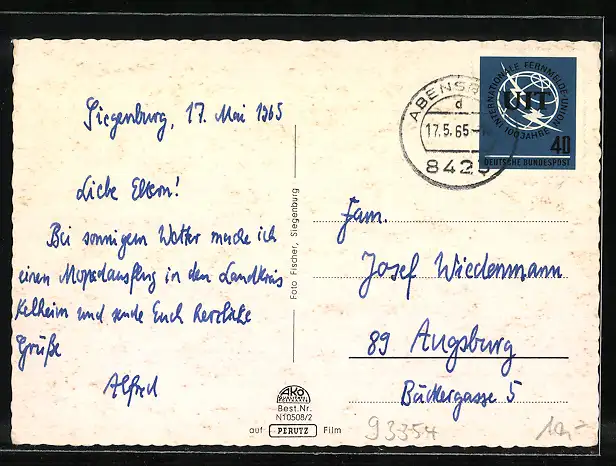 Siegenburg, 17. Mai 1965
Liebe Eltern!
Bei sonnigem Wetter mache ich
einen Mopedausflug in den Landkreis
Kelheim und sende Euch herzliche
Grüße
Alfred
Foto Fischer, Siegenburg
Ako
Best.Nr.
N10508/2
auf PERUTZ Film
ABENSB
d
17.5.65
842
INTERNATIONALE FERNMELDE UNION
100 JAHRE
UIT
40
DEUTSCHE BUNDESPOST
Fam.
Josef Wiedenmann
89 Augsburg
Bäckergasse 5
93354